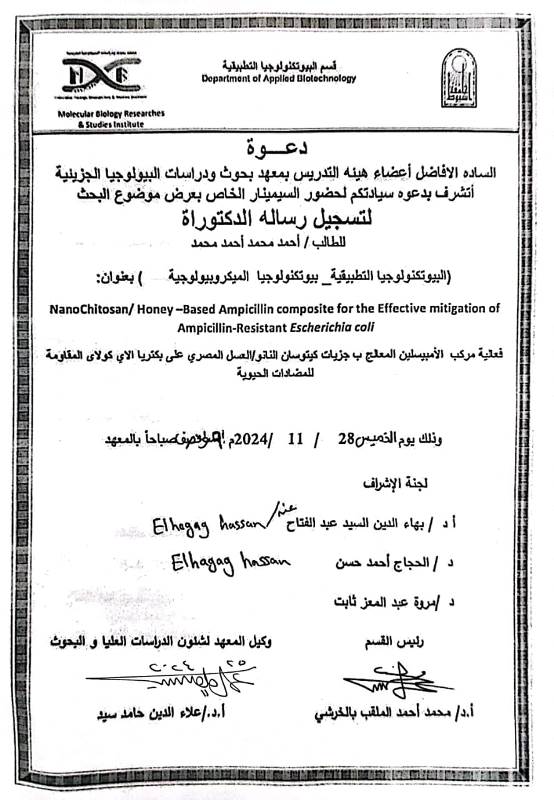 قسم البيوتكنولوجيا التطبيقية
Department of Applied Biotechnology
Molecular Biology Researches
& Studies Institute
دعـــوة
الساده الافاضل أعضاء هيئه التدريس بمعهد بحوث ودراسات البيولوجيا الجزيئية
أتشرف بدعوه سيادتكم لحضور السيمينار الخاص بعرض موضوع البحث
لتسجيل رساله الدكتوراة
للطالب / أحمد محمد أحمد محمد
(البيوتكنولوجيا التطبيقية_ بيوتكنولوجيا الميكروبيولوجية ) بعنوان:
NanoChitosan/ Honey –Based Ampicillin composite for the Effective mitigation of
Ampicillin-Resistant Escherichia coli
فعالية مركب الأمبيسلين المعالج ب جزيات كيتوسان النانو/العسل المصري على بكتريا الاي كولاى المقاومة
للمضادات الحيوية
وذلك يوم الخميس 28 / 11 /2024م صباحاً بالمعهد
لجنة الإشراف
أ د / بهاء الدين السيد عبد الفتاح عنه/ Elhagag hassan
د / الحجاج أحمد حسن Elhagag hassan
د /مروة عبد المعز ثابت
رئيس القسم
وكيل المعهد لشئون الدراسات العليا و البحوث
أ.د/ محمد أحمد الملقب بالخرشي
أ.د./علاء الدين حامد سيد